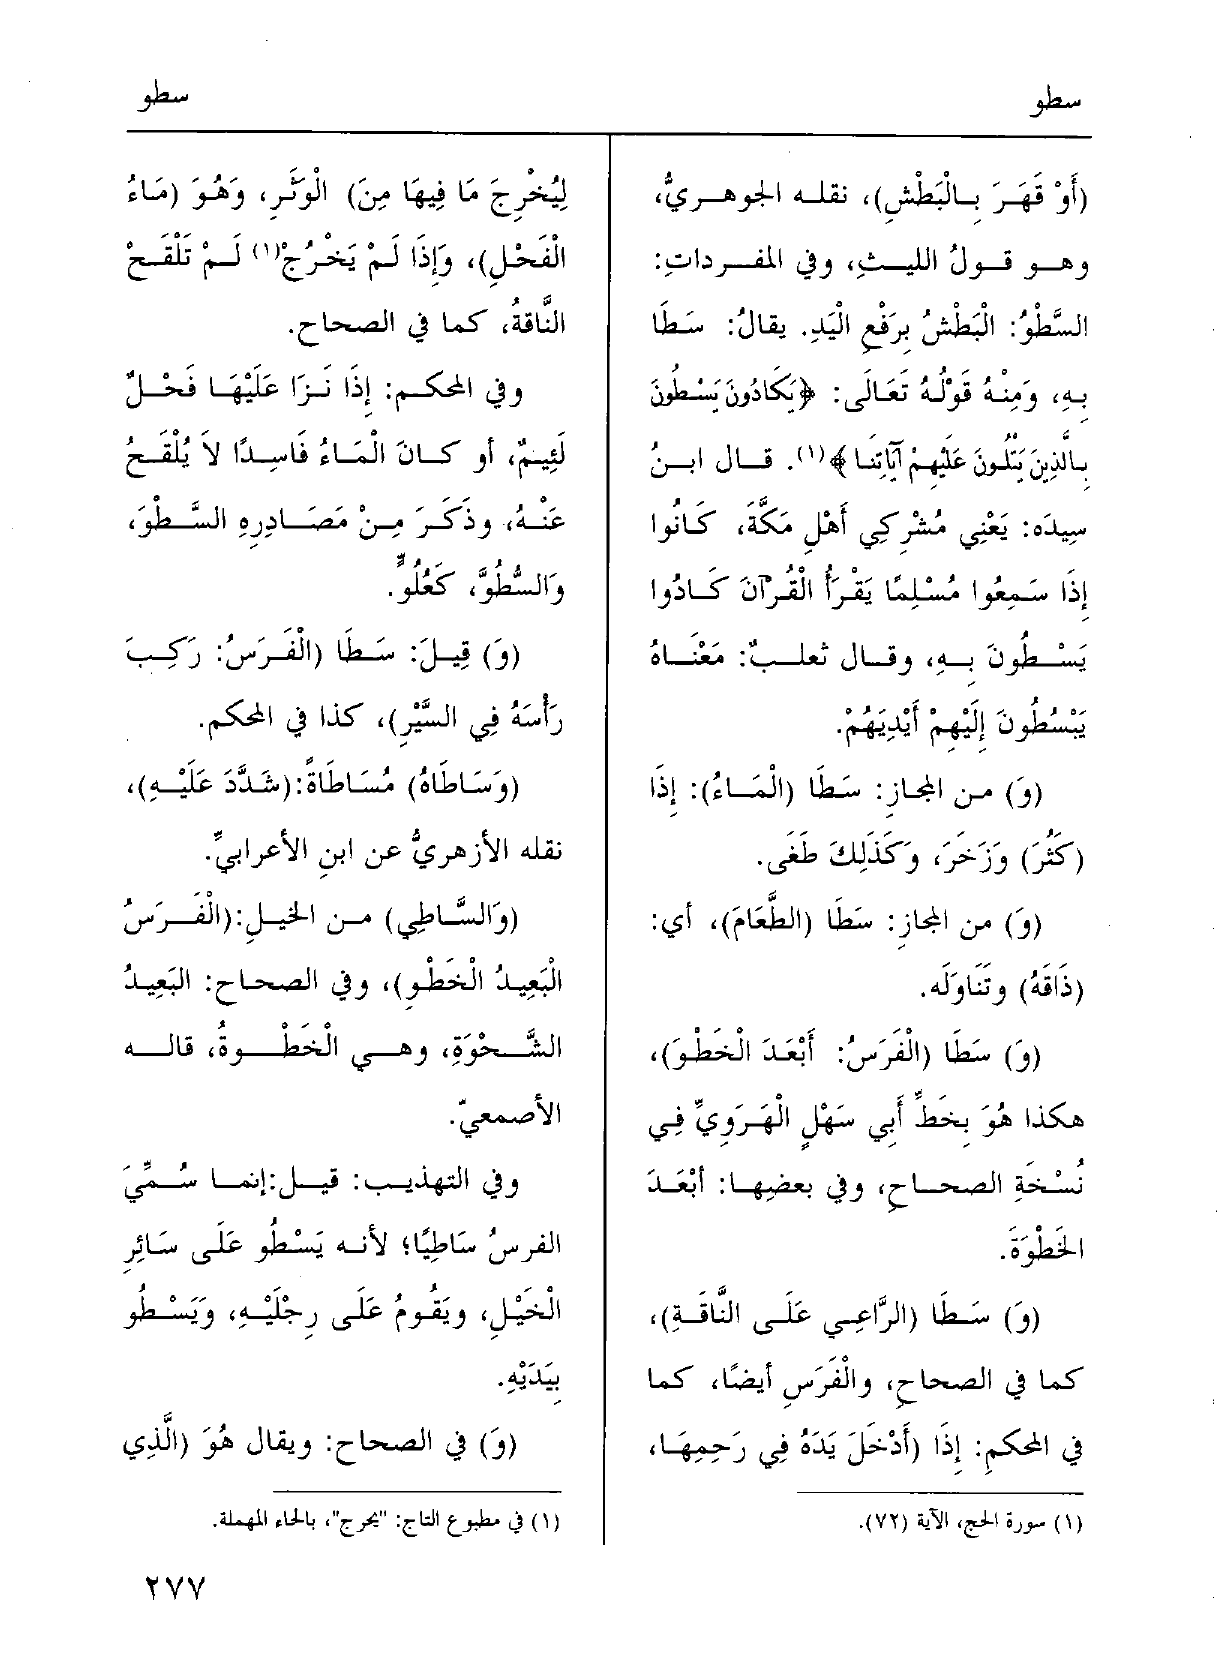 سطو
سطو
(أَوْ قَهَرَ بِالْبَطْشِ)، نقله الجوهريُّ،
وهو قولُ الليثِ، وفي المفرداتِ:
السَّطْوُ: الْبَطْشُ بِرَفْعِ الْيَدِ. يقالُ: سَطَا
بِهِ، وَمِنْهُ قَوْلُهُ تَعَالَى: ﴿يَكَادُونَ يَسْطُونَ
بِالَّذِينَ يَتْلُونَ عَلَيْهِمْ آيَاتِنَا﴾(١). قال ابنُ
سِيدَه: يَعْنِي مُشْرِكِي أَهْلِ مَكَّةَ، كَانُوا
إِذَا سَمِعُوا مُسْلِمًا يَقْرَأُ الْقُرْآنَ كَادُوا
يَسْطُونَ بِهِ، وقال ثعلبٌ: مَعْنَاهُ
يَبْسُطُونَ إِلَيْهِمْ أَيْدِيَهُمْ.
(وَ) مِن المجازِ: سَطَا (الْمَاءُ): إِذَا
(كَثُرَ) وَزَخَرَ، وَكَذَلِكَ طَغَى.
(وَ) من المجازِ: سَطَا (الطَّعَامَ)، أي:
(ذَاقَهُ) وتَنَاوَلَه.
(وَ) سَطَا (الْفَرَسُ: أَبْعَدَ الْخَطْوَ)،
هكذا هُوَ بِخَطِّ أَبِي سَهْلٍ الْهَرَوِيِّ فِي
نُسْخَةِ الصحاحِ، وفي بعضِها: أَبْعَدَ
الخَطْوَةَ.
(وَ) سَطَا (الرَّاعِي عَلَى النَّاقَةِ)،
كما في الصحاحِ، والْفَرَسِ أيضًا، كما
في المحكمِ: إِذَا (أَدْخَلَ يَدَهُ فِي رَحِمِهَا،
(١) سورة الحج، الآية (٧٢).
لِيُخْرِجَ مَا فِيهَا مِنَ) الْوَثْرِ، وَهُوَ (مَاءُ
الْفَحْلِ)، وَإِذَا لَمْ يَخْرُجْ(١) لَمْ تَلْقَحْ
النَّاقَةُ، كما في الصحاح.
وفي المحكمِ: إِذَا نَزَا عَلَيْهَا فَحْلٌ
لَئِيمٌ، أو كَانَ الْمَاءُ فَاسِدًا لاَ يُلْقَحُ
عَنْهُ، وذَكَرَ مِنْ مَصَادِرِهِ السَّطْوَ،
وَالسُّطُوَّ، كَعُلُوٍّ.
(وَ) قِيلَ: سَطَا (الْفَرَسُ: رَكِبَ
رَأْسَهُ فِي السَّيْرِ)، كذا في المحكم.
(وَسَاطَاهُ) مُسَاطَاةً: (شَدَّدَ عَلَيْهِ)،
نقله الأزهريُّ عن ابنِ الأعرابيِّ.
(وَالسَّاطِي) من الخيلِ: (الْفَرَسُ
الْبَعِيدُ الْخَطْوِ)، وفي الصحاحِ: الْبَعِيدُ
الشَّحْوَةِ، وهي الْخَطْوةُ، قاله
الأصمعيّ.
وفي التهذيبِ: قيل: إنما سُمِّيَ
الفرسُ سَاطِيًا؛ لأنه يَسْطُو عَلَى سَائِرِ
الْخَيْلِ، ويَقُومُ عَلَى رِجْلَيْهِ، وَيَسْطُو
بِيَدَيْهِ.
(وَ) في الصحاح: ويقال هُوَ (الَّذِي
(١) في مطبوع التاج: "يحرج"، بالحاء المهملة.
٢٧٧